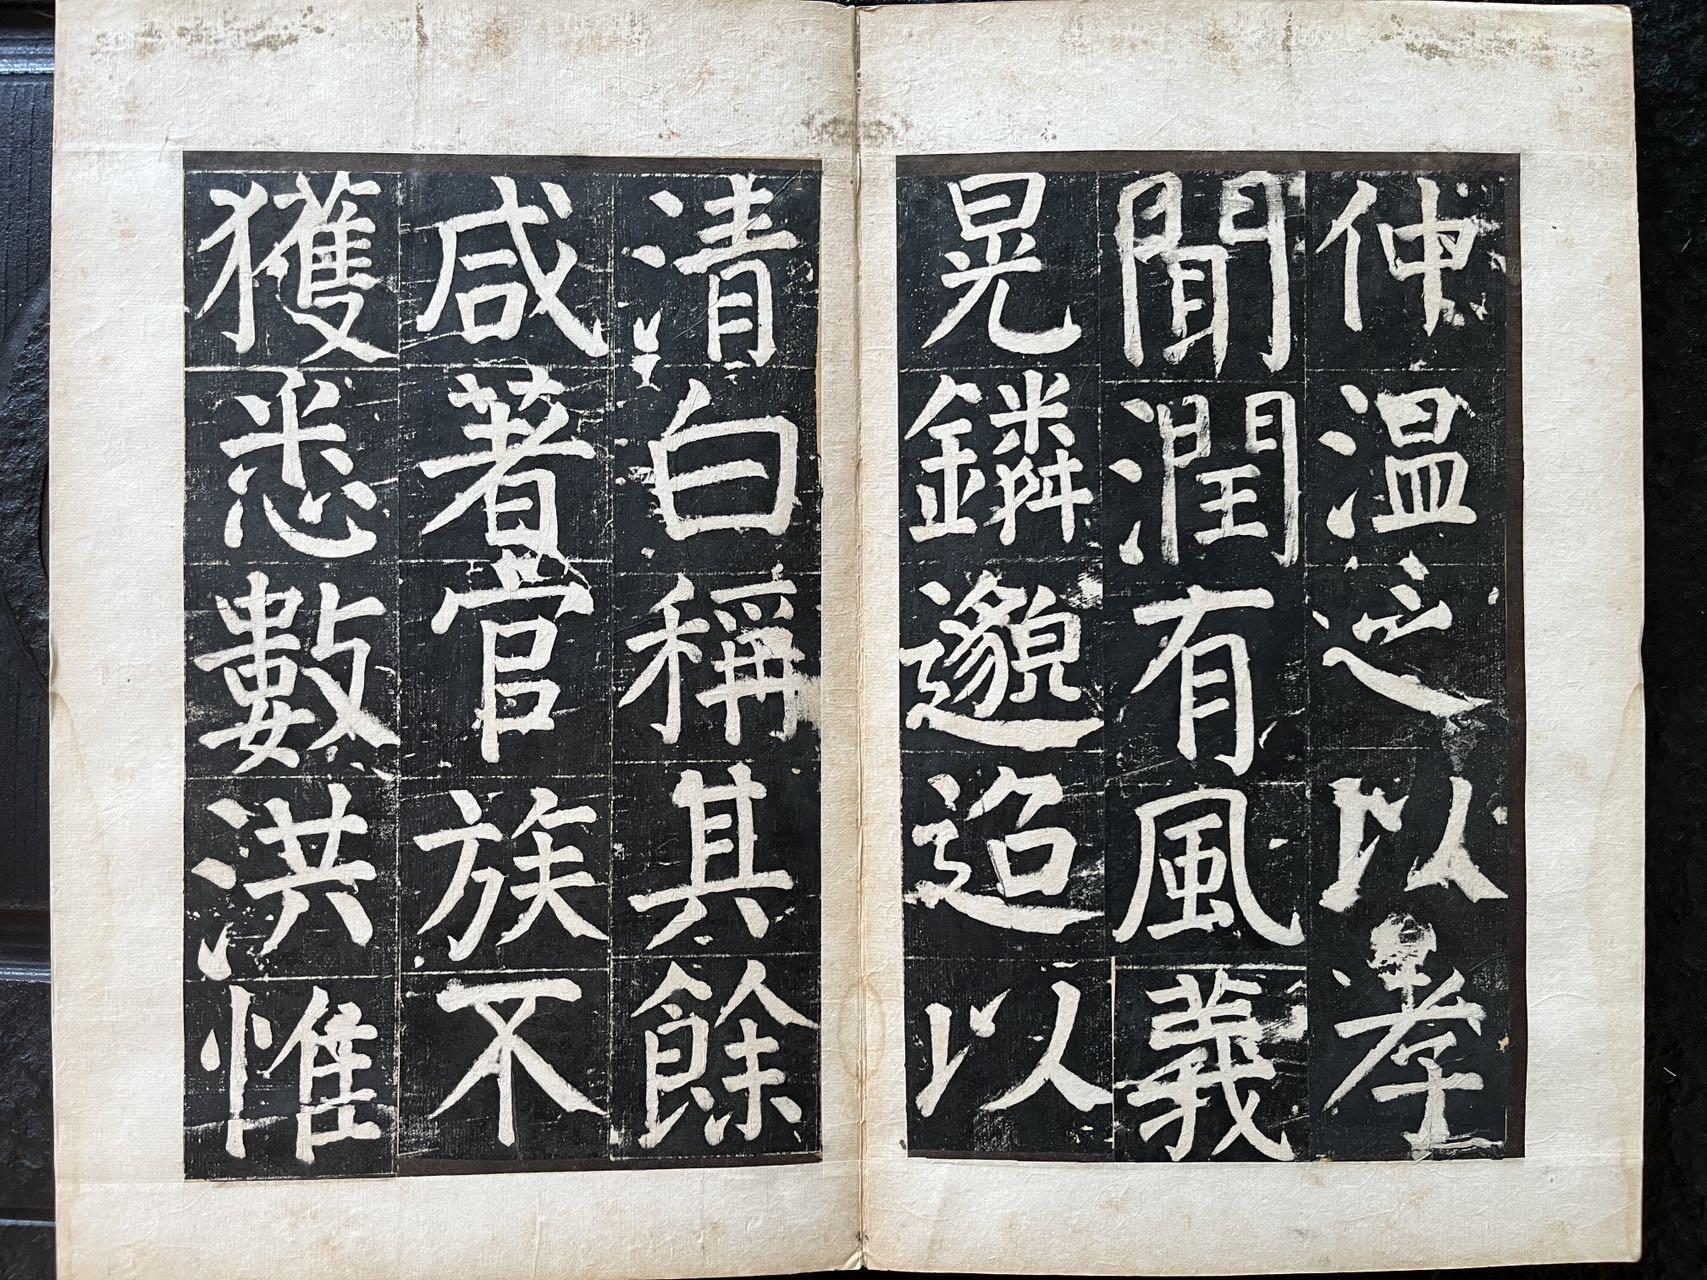 仲温之以孝
聞潤有風義
晃鏻邈迢以
清白稱其餘
咸著官族不
獲悉數洪惟